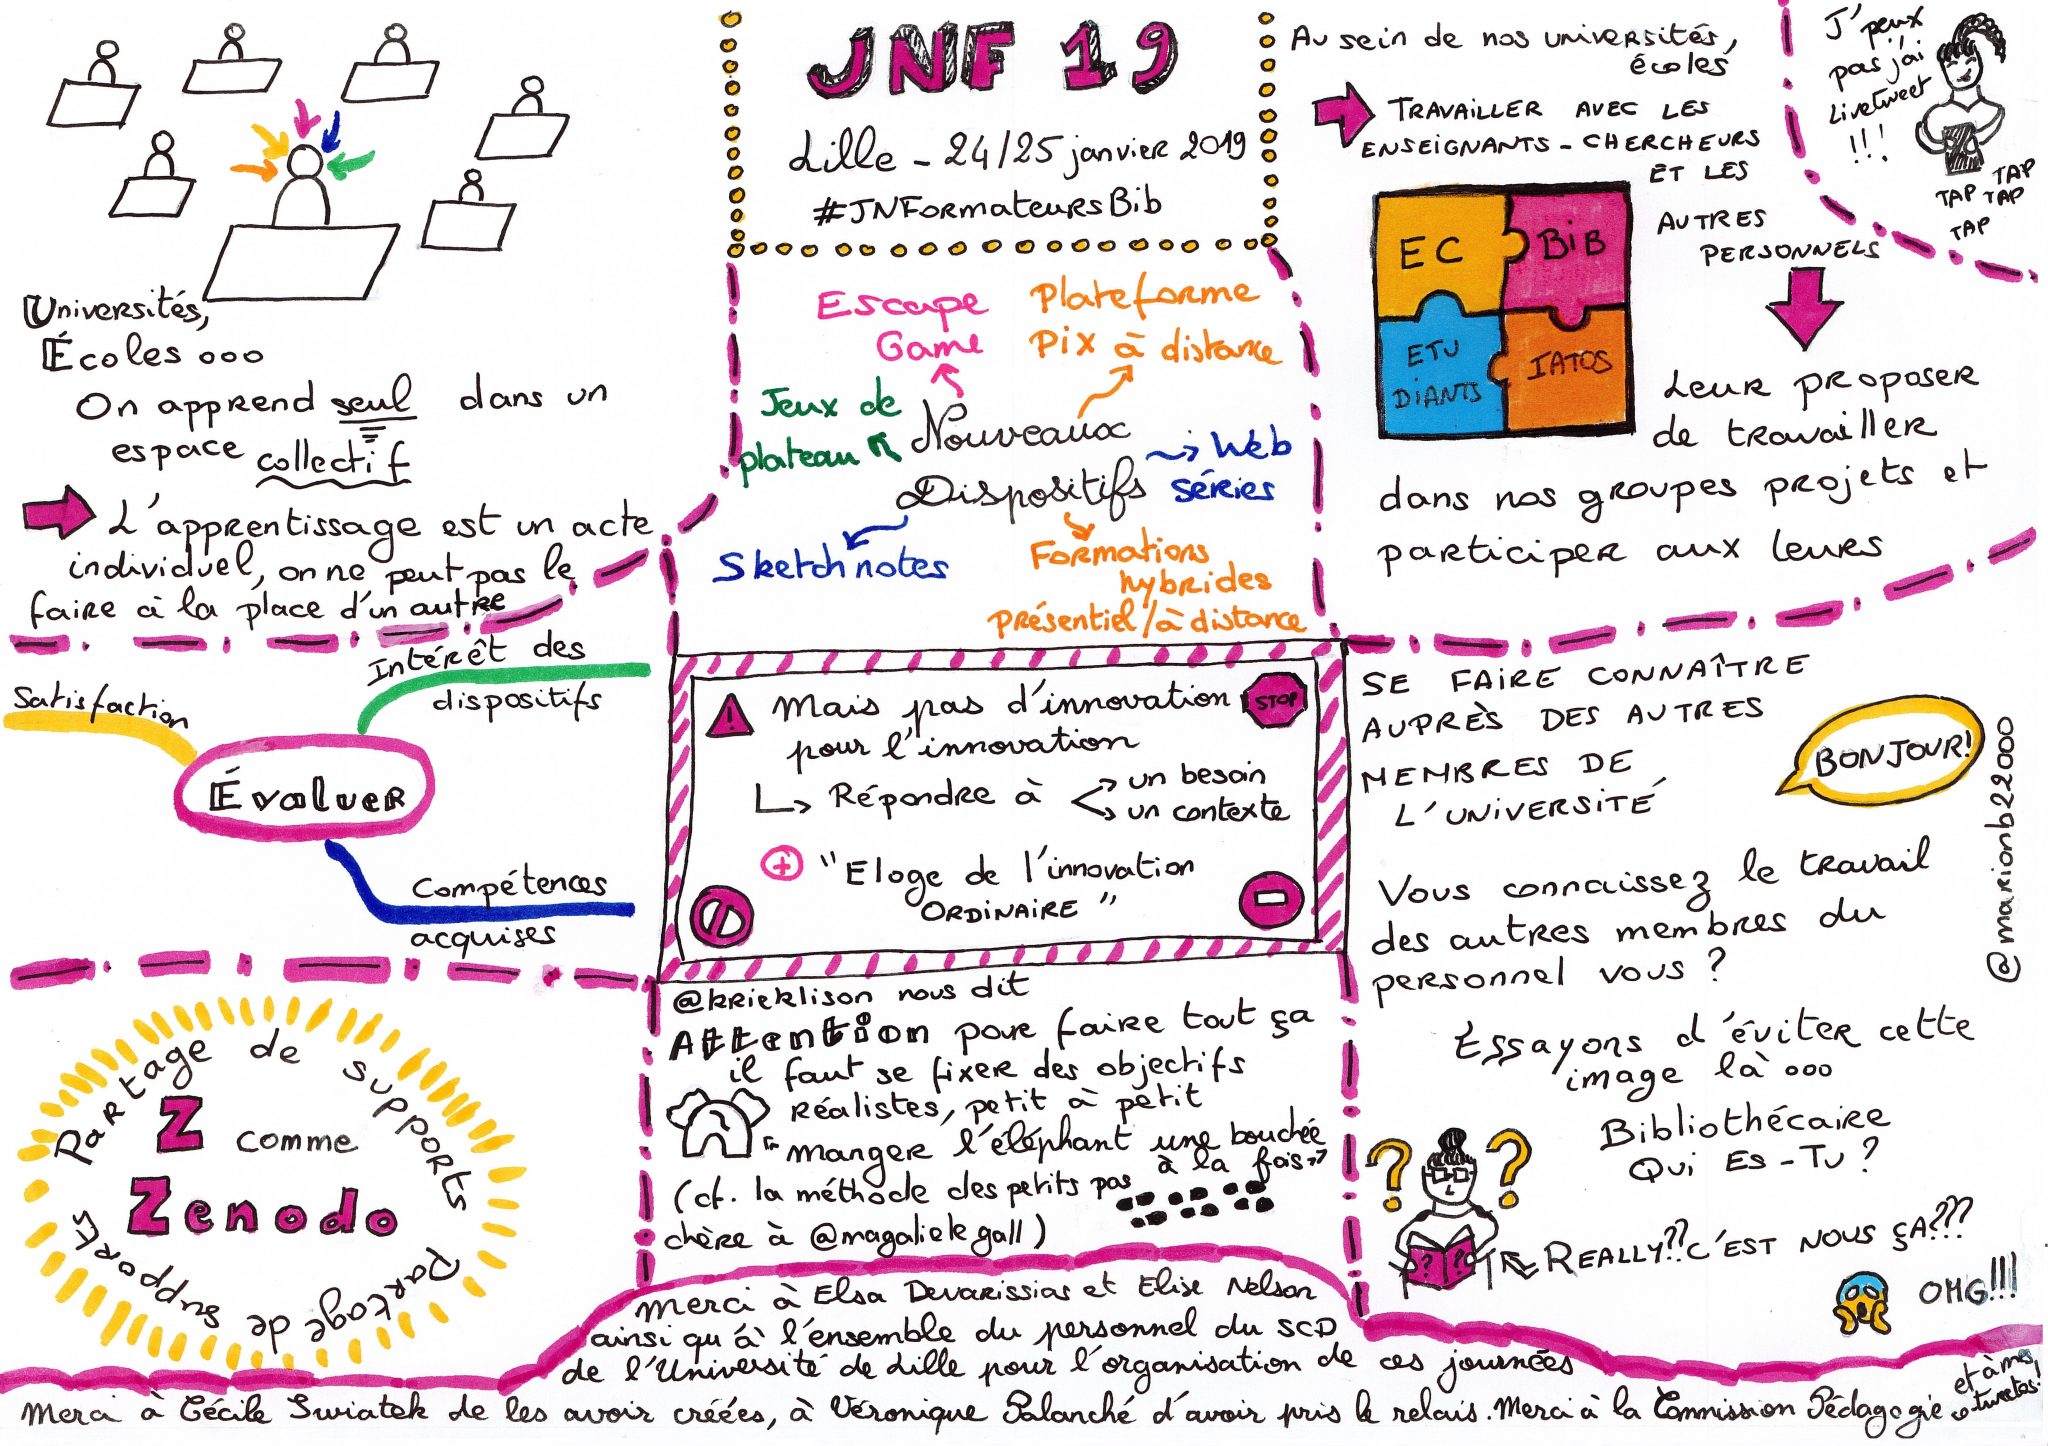 JNF 19
Lille - 24/25 janvier 2019
#JNFormateursBib
Universités,
Écoles ...
On apprend seul dans un
espace collectif
L'apprentissage est un acte
individuel, on ne peut pas le
faire à la place d'un autre
Escape
Game
Plateforme
Pix à distance
Jeux de
plateau
Nouveaux
Dispositifs
Web
séries
Sketchnotes
Formations
hybrides
présentiel/à distance
Au sein de nos universités,
écoles
TRAVAILLER AVEC LES
ENSEIGNANTS-CHERCHEURS
ET LES
AUTRES
PERSONNELS
EC
BIB
ETU
DIANTS
IATOS
Leur proposer
de travailler
dans nos groupes projets et
participer aux leurs
J'peux
pas j'ai
Livetweet
!!!
TAP TAP
TAP TAP
TAP
Satisfaction
Intérêt des
dispositifs
Évaluer
Compétences
acquises
Mais pas d'innovation
pour l'innovation
STOP
Répondre à
un besoin
un contexte
+ "Eloge de l'innovation
ORDINAIRE"
SE FAIRE CONNAÎTRE
AUPRÈS DES AUTRES
MEMBRES DE
L'UNIVERSITÉ
BONJOUR!
@marionb22000
Vous connaissez le travail
des autres membres du
personnel vous ?
Essayons d'éviter cette
image là ...
Bibliothécaire
Qui Es-Tu ?
? ?
? ?
REALLY?? C'EST NOUS ÇA???
OMG!!!
Partage de supports
Z comme
Zenodo
Partage de supports
@krieklison nous dit
Attention pour faire tout ça
il faut se fixer des objectifs
réalistes, petit à petit
"manger l'éléphant une bouchée
à la fois"
(cf. la méthode des petits pas
chère à @magaliekgall)
Merci à Elsa Devarissias et Elise Nelson
ainsi qu'à l'ensemble du personnel du SCD
de l'Université de Lille pour l'organisation de ces journées
Merci à Cécile Swiatek de les avoir créées, à Véronique Palanché d'avoir pris le relais. Merci à la Commission Pédagogie
et à mes
tweetos!